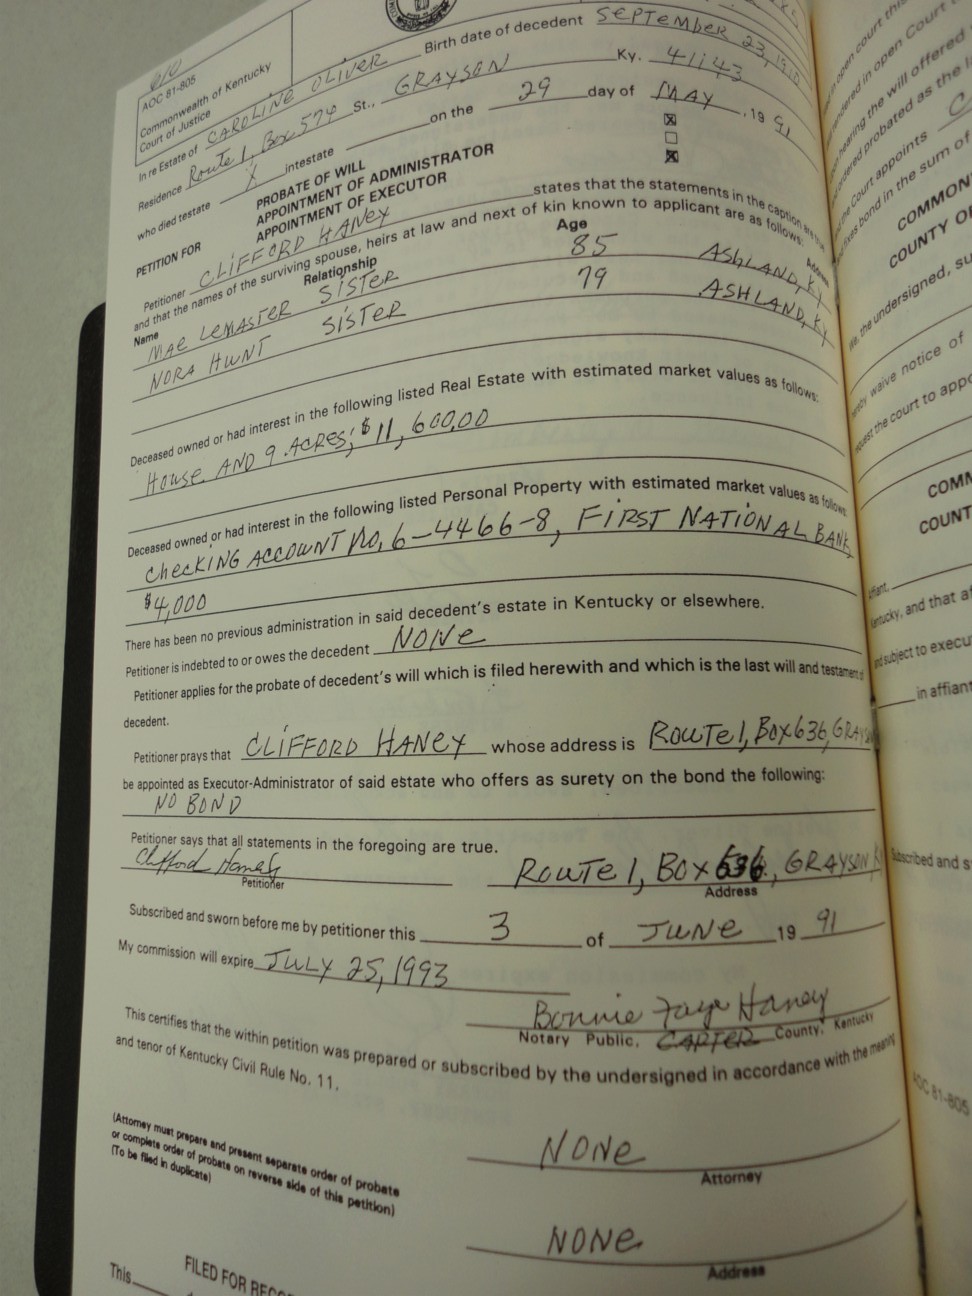 AOC 81-805
Commonwealth of Kentucky
Court of Justice
In re Estate of CAROLINE OLIVER Birth date of decedent SEPTEMBER 23, 1910
Residence Route 1, Box 574 St., GRAYSON Ky. 41143
who died testate X intestate on the 29 day of MAY, 19 91
PETITION FOR
PROBATE OF WILL ☒
APPOINTMENT OF ADMINISTRATOR ☐
APPOINTMENT OF EXECUTOR ☒
Petitioner CLIFFORD HANEY states that the statements in the caption are true
and that the names of the surviving spouse, heirs at law and next of kin known to applicant are as follows:
Name Relationship Age Address
MAE LEMASTER SISTER 85 ASHLAND, KY
NORA HUNT SISTER 79 ASHLAND, KY
Deceased owned or had interest in the following listed Real Estate with estimated market values as follows:
HOUSE AND 9 ACRES; $11,600.00
Deceased owned or had interest in the following listed Personal Property with estimated market values as follows:
CHECKING ACCOUNT NO, 6-4466-8, FIRST NATIONAL BANK,
$4,000
There has been no previous administration in said decedent's estate in Kentucky or elsewhere.
Petitioner is indebted to or owes the decedent NONE
Petitioner applies for the probate of decedent's will which is filed herewith and which is the last will and testament of
decedent.
Petitioner prays that CLIFFORD HANEY whose address is ROUTE 1, BOX 636, GRAYSON
be appointed as Executor-Administrator of said estate who offers as surety on the bond the following:
NO BOND
Petitioner says that all statements in the foregoing are true.
Clifford Haney ROUTE 1, BOX 636, GRAYSON K
Petitioner Address
Subscribed and sworn before me by petitioner this 3 of JUNE 19 91
My commission will expire JULY 25, 1993
Bonnie Faye Haney
Notary Public, CARTER County, Kentucky
This certifies that the within petition was prepared or subscribed by the undersigned in accordance with the meaning
and tenor of Kentucky Civil Rule No. 11.
NONE
Attorney
(Attorney must prepare and present separate order of probate
or complete order of probate on reverse side of this petition)
(To be filed in duplicate)
NONE
Address
FILED FOR RECO
This
in open court this
hearing the will offered
ordered probated as the
the Court appoints C
fixes bond in the sum of
COMMON
COUNTY O
We, the undersigned, su
hereby waive notice of
request the court to appo
COMM
COUNT
Affiant,
Kentucky, and that af
and subject to execu
in affiant
Subscribed and s
AOC 81-805